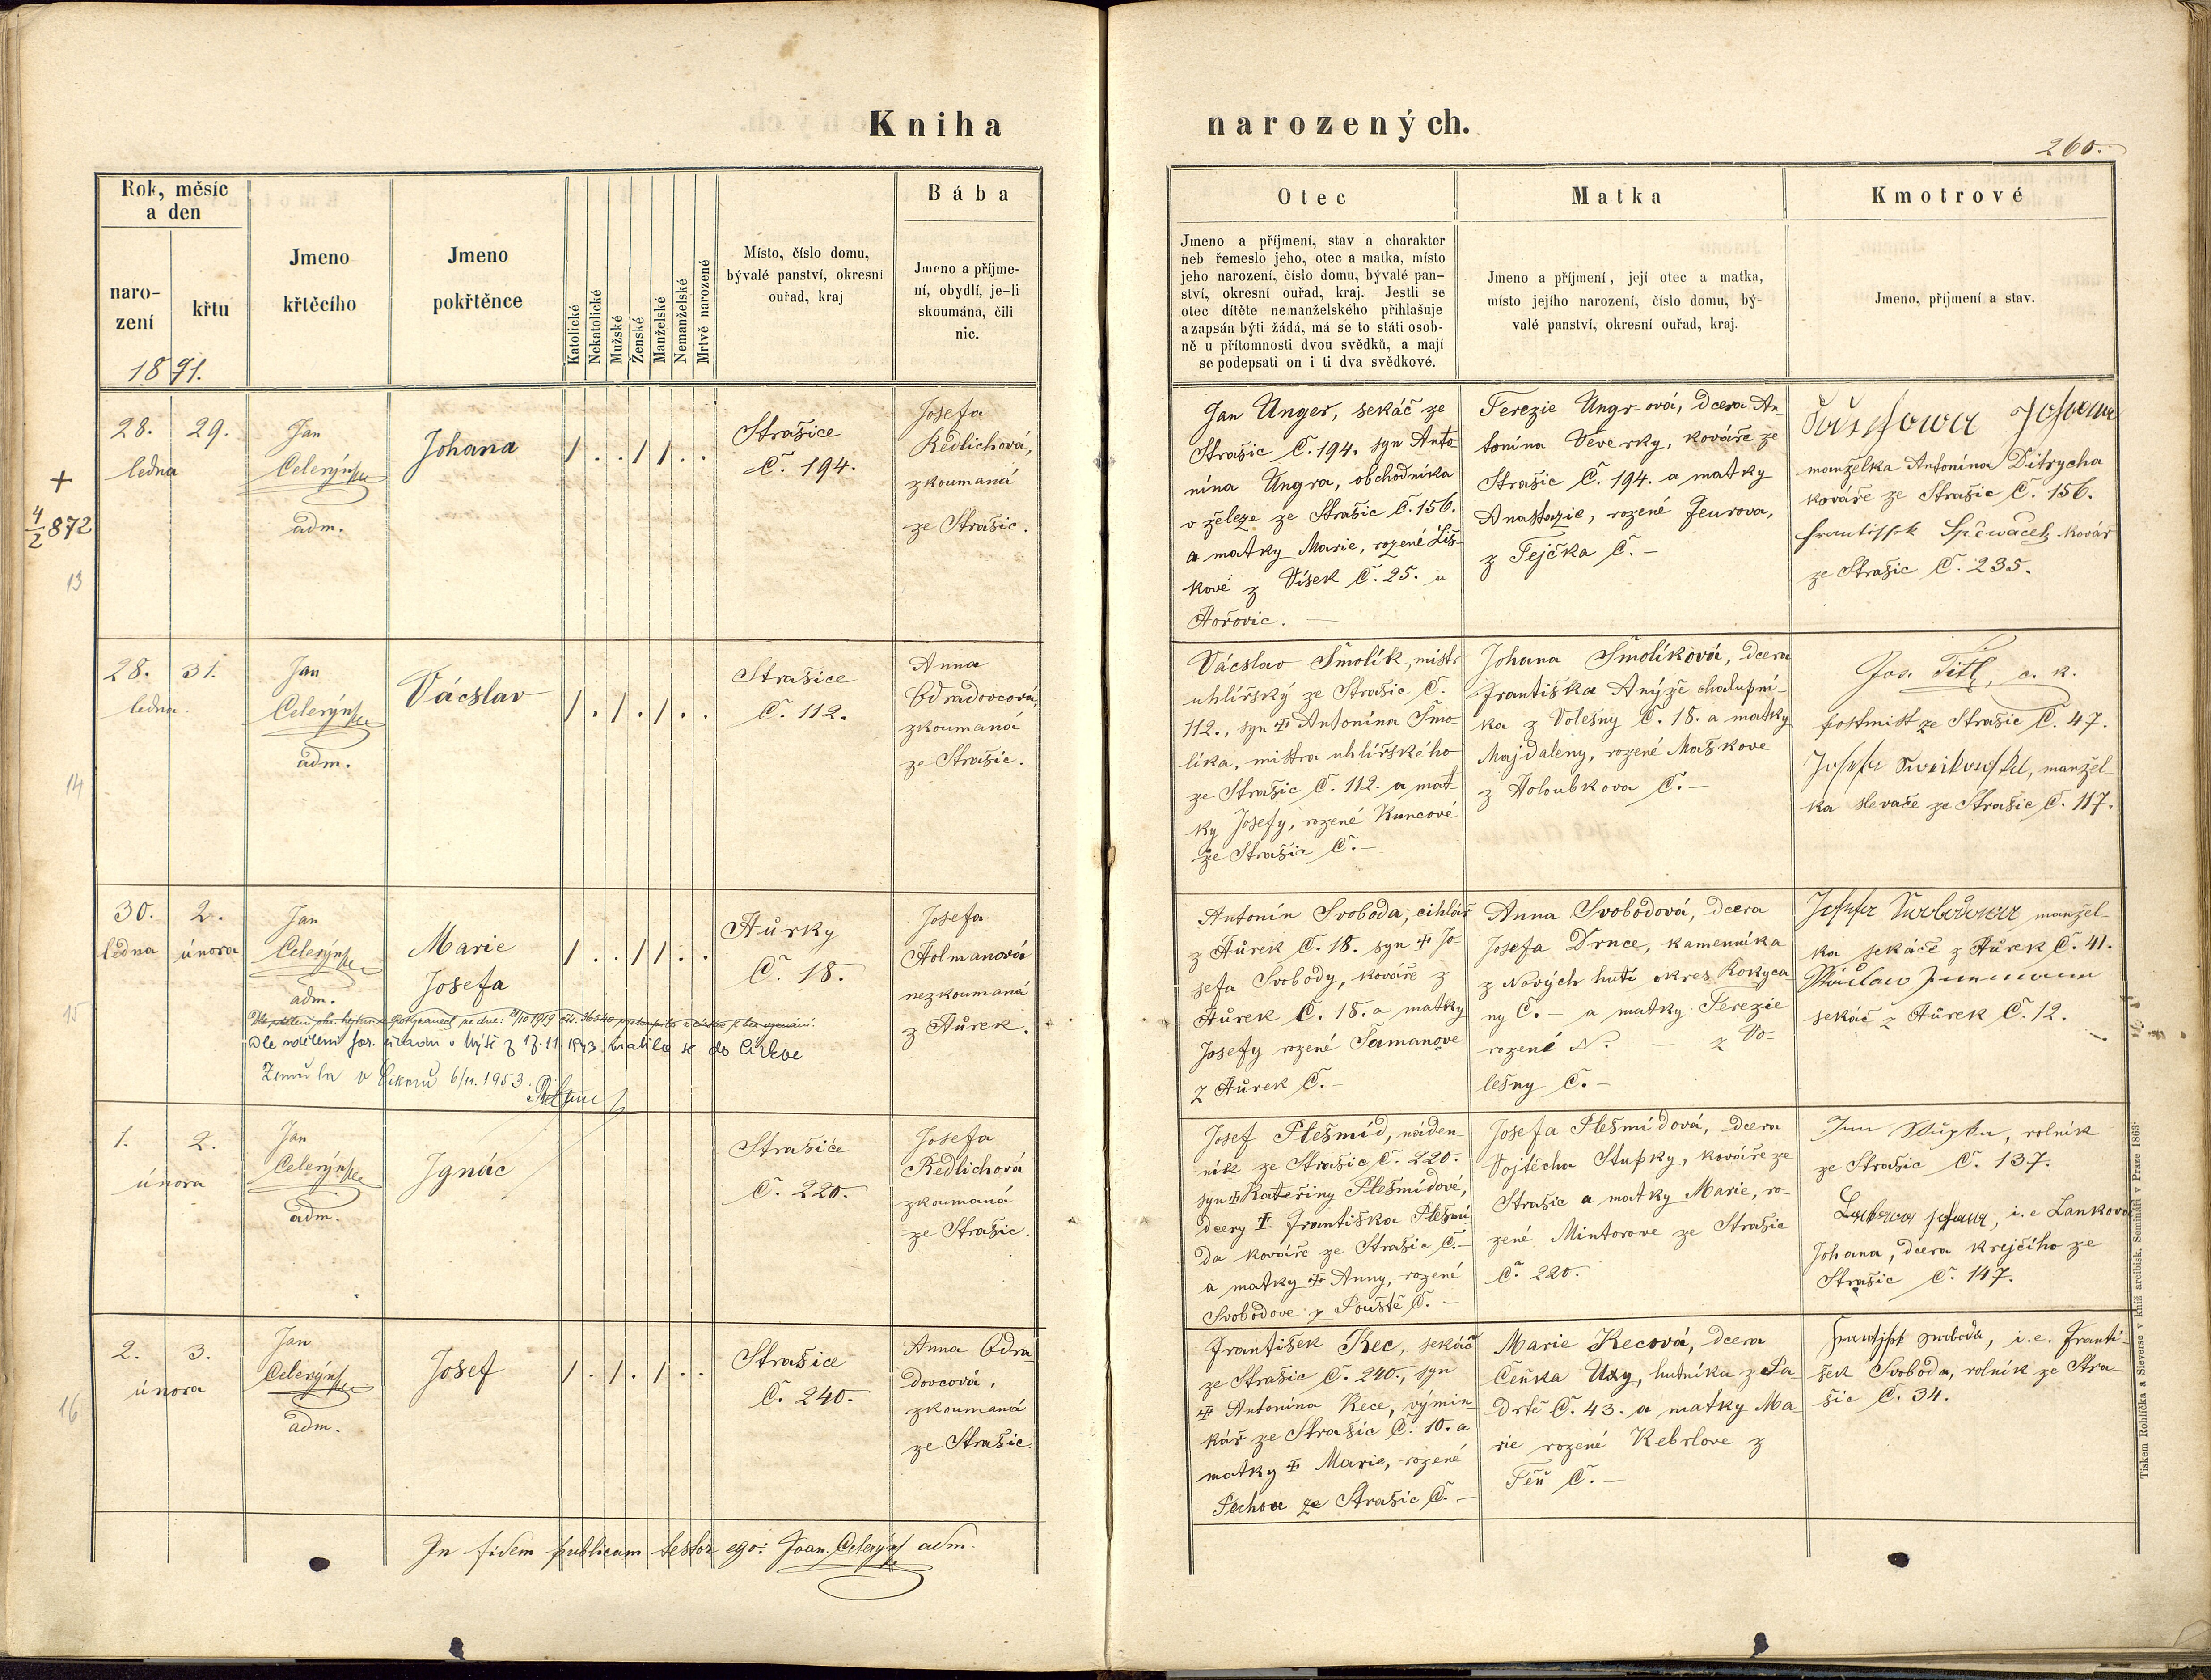 Kniha
narozených.
260.
Rok, měsíc
a den
naro-
zení
křtu
1891.
Jmeno
křtěcího
Jmeno
pokřtěnce
Katolické
Nekatolické
Mužské
Ženské
Manželské
Nemanželské
Mrtvě narozené
Místo, číslo domu,
bývalé panství, okresní
ouřad, kraj
Bába
Jmeno a příjme-
ní, obydlí, je-li
skoumána, čili
nic.
Otec
Jmeno a příjmení, stav a charakter
neb řemeslo jeho, otec a matka, místo
jeho narození, číslo domu, bývalé pan-
ství, okresní ouřad, kraj. Jestli se
otec dítěte nemanželského přihlašuje
a zapsán býti žádá, má se to státi osob-
ně u přítomnosti dvou svědků, a mají
se podepsati on i ti dva svědkové.
Matka
Jmeno a příjmení, její otec a matka,
místo jejího narození, číslo domu, bý-
valé panství, okresní ouřad, kraj.
Kmotrové
Jmeno, příjmení a stav.
+
4/2 872
13
28. 29.
ledna
Jan
Celerýn
adm.
Johana
/ . . / / . .
Strašice
Č. 194.
Josefa
Redlichová,
zkoumaná
ze Strašic.
Jan Unger, sekáč ze
Strašic Č. 194. syn Anto
nína Ungra, obchodníka
v železe ze Strašic Č. 156.
a matky Marie, rozené Liš-
kové z Vísek Č. 25. u
Hořovic. —
Terezie Ungrová, dcera An-
tonína Veverky, kováře ze
Strašic Č. 194. a matky
Anastazie, rozené Feurova,
z Tejčka Č. —
Johana
manželka Antonína Ditrycha
kováře ze Strašic Č. 156.
Frantissek Spěwaček kovář
ze Strašic Č. 235.
14
28. 31.
ledna.
Jan
Celerýn
adm.
Václav
/ . / . / . .
Strašice
Č. 112.
Anna
Odradovcová,
zkoumaná
ze Strašic.
Václav Smolík, mistr
uhlířský ze Strašic Č.
112., syn ✝ Antonína Smo-
líka, mistra uhlířského
ze Strašic Č. 112. a mat-
ky Josefy, rozené Kuncové
ze Strašic Č. —
Johana Smolíková, dcera
Františka Anýže chalupní-
ka z Volešny Č. 18. a matky
Majdaleny, rozené Maškove
z Holoubkova Č. —
Jos. Titl, c. k.
postmist ze Strašic Č. 47.
Josefa manžel-
ka slevače ze Strašic Č. 117.
15
30. 2.
ledna února
Jan
Celerýn
adm.
Marie
Josefa
/ . . / / . .
Hůrky
Č. 18.
Josefa
Holmanová
nezkoumaná
z Hůrek.
Dle sdělení far. úřadu v Mýtě z 17.11 1943 vrátila se do Církve
Zemřela v 6/11. 1953.
Antonín Svoboda, cihlář
z Hůrek Č. 18. syn ✝ Jo-
sefa Svobody, kováře z
Hůrek Č. 18. a matky
Josefy rozené Šamanove
z Hůrek Č. —
Anna Svobodová, dcera
Josefa Drnce, kamenníka
z Nových hutí okres Rokyca
ny Č. — a matky Terezie
rozené N. — z Vo-
lešny Č. —
Josefa Swobodowa manžel-
ka sekáče z Hůrek Č. 41.
Wáclaw
sekáč z Hůrek Č. 12.
1. 2.
února
Jan
Celerýn
adm.
Ignác
Strašice
Č. 220.
Josefa
Redlichová
zkoumaná
ze Strašic.
Josef Plešmíd, náden-
ník ze Strašic Č. 220.
syn ✝ Kateřiny Plešmídové,
dcery ✝ Františka Plešmí
da kováře ze Strašic Č. —
a matky ✝ Anny, rozené
Svobodove z Pouště Č. —
Josefa Plešmídová, dcera
Vojtěcha Stupky, kováře ze
Strašic a matky Marie, ro-
zené Mintorove ze Strašic
Č. 220.
Jan Stupka, rolník
ze Strašic Č. 137.
i. e Lankova
Johana, dcera krejčího ze
Strašic Č. 147.
16
2. 3.
února
Jan
Celerýn
adm.
Josef
/ . / . / . .
Strašice
Č. 240.
Anna Odra
dovcová,
zkoumaná
ze Strašic.
František Kec, sekáč
ze Strašic Č. 240., syn
✝ Antonína Kece, výmin
kář ze Strašic Č. 10. a
matky ✝ Marie, rozené
Pechove ze Strašic Č. —
Marie Kecová, dcera
Čeňka Uxy, hutníka z Pa-
drtě Č. 43. a matky Ma
rie rozené Kebrlove z
Těň Č. —
Frantisst swoboda, i. e. Franti-
šek Svoboda, rolník ze Stra
šic Č. 34.
In fidem publicam testor ego: Joan. Celerýn adm.
Tiskem Rohlíčka a Sieverse v kníž. arcibisk. Semináři v Praze 1863.